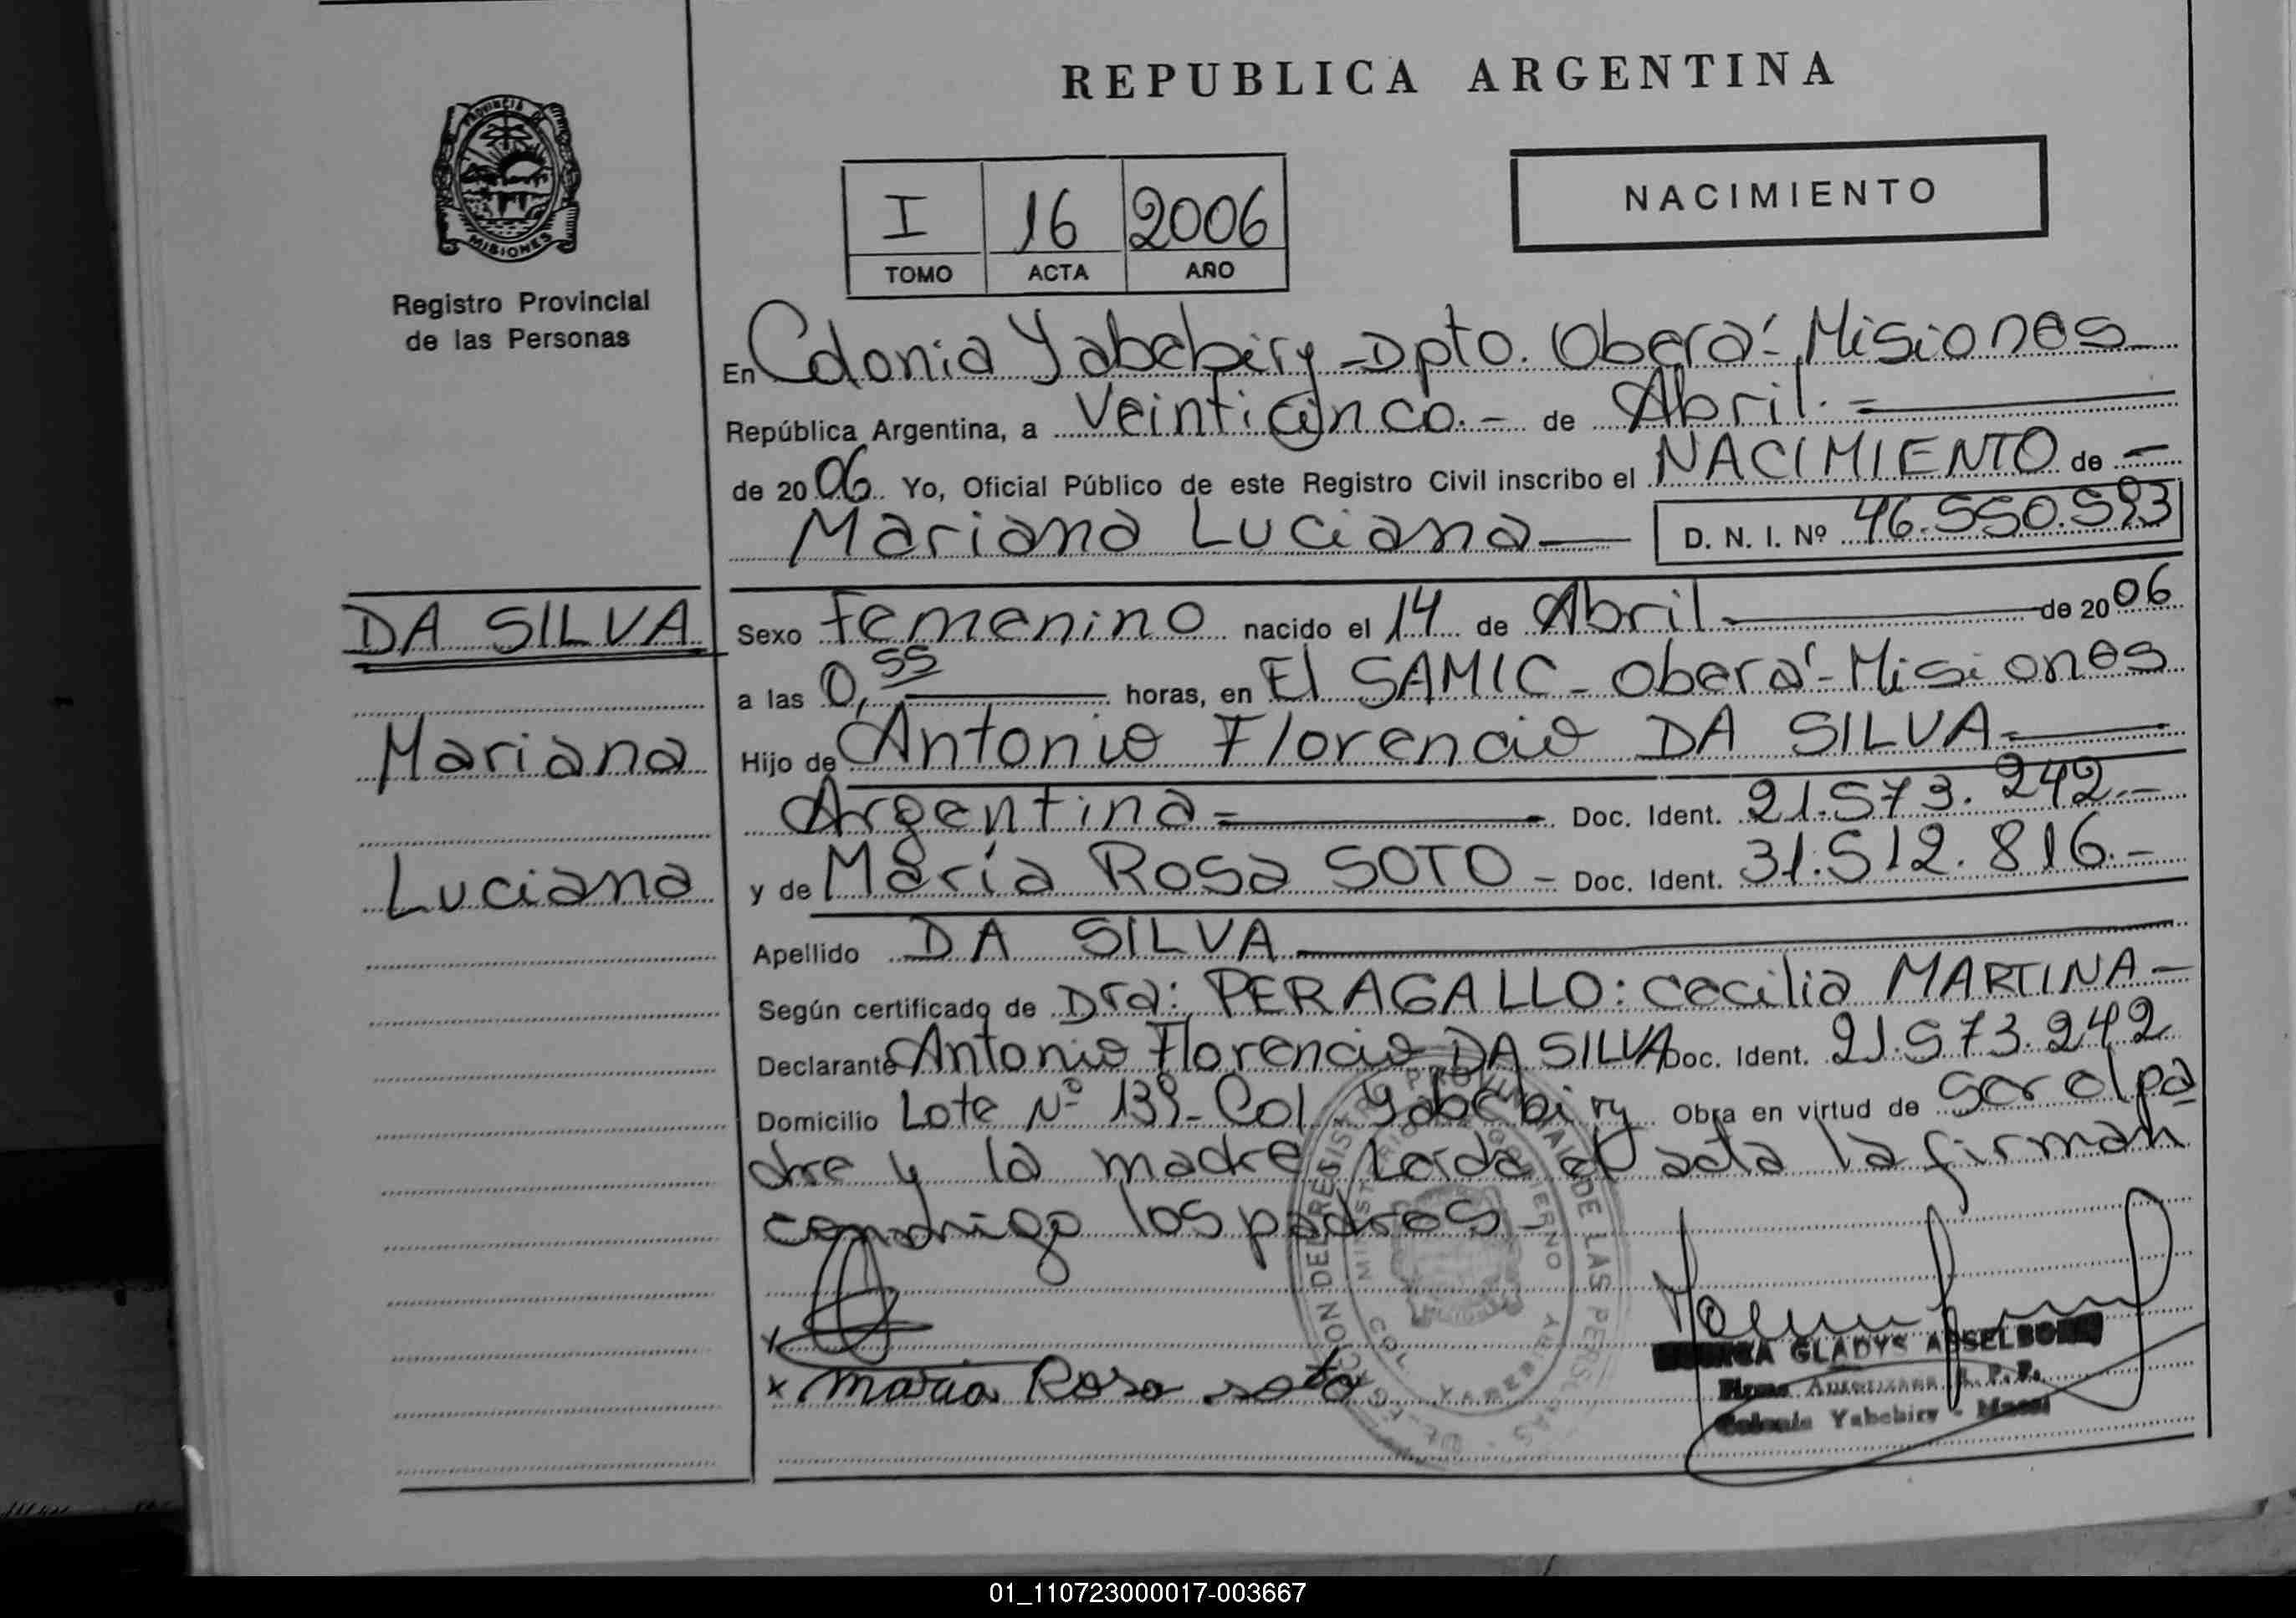 REPUBLICA ARGENTINA
PROVINCIA DE
MISIONES
Registro Provincial
de las Personas
I 16 2006
TOMO ACTA AÑO
NACIMIENTO
En Colonia Yabebiry - Dpto. Oberá - Misiones
República Argentina, a Veinticinco.- de Abril.=
de 2006 Yo, Oficial Público de este Registro Civil inscribo el NACIMIENTO de -
Mariana Luciana D. N. I. Nº 46.550.593
DA SILVA
Mariana
Luciana
Sexo Femenino nacido el 14 de Abril de 2006
a las 0,55 horas, en El SAMIC - Oberá - Misiones
Hijo de Antonio Florencio DA SILVA
Argentina = Doc. Ident. 21.573.242.-
y de María Rosa SOTO - Doc. Ident. 31.512.816.-
Apellido DA SILVA
Según certificado de Dra: PERAGALLO: Cecilia MARTINA -
Declarante Antonio Florencio DA SILVA Doc. Ident. 21.573.242
Domicilio Lote Nº 139 - Col Yabebiry Obra en virtud de ser el pa
dre y la madre Leída el acta la firman
conmigo los padres -
x
x Maria Rosa Soto
GLADYS
Colonia Yabebiry -
01_110723000017-003667